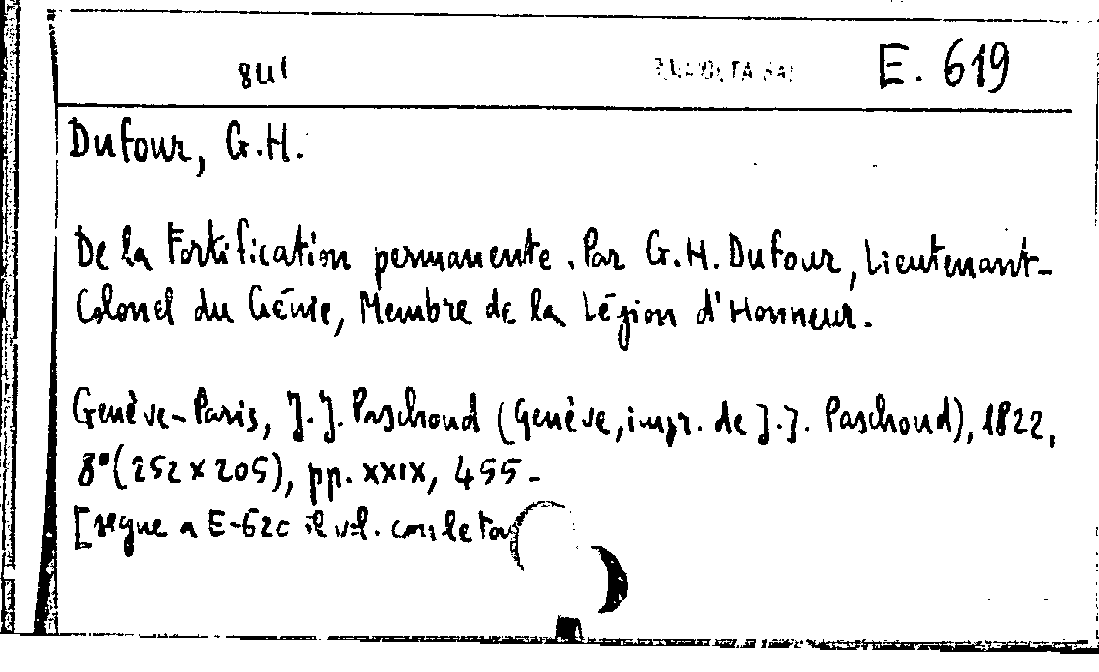 841 E. 619
Dufour, G.H.
De la Fortification permanente. Par G.H. Dufour, Lieutenant-
Colonel du Génie, Membre de la Légion d'Honneur.
Genève-Paris, J.J. Paschoud (Genève, impr. de J.J. Paschoud), 1822,
8°(252 x 205), pp. XXIX, 455-
[segue a E-620 il vol. con le tav